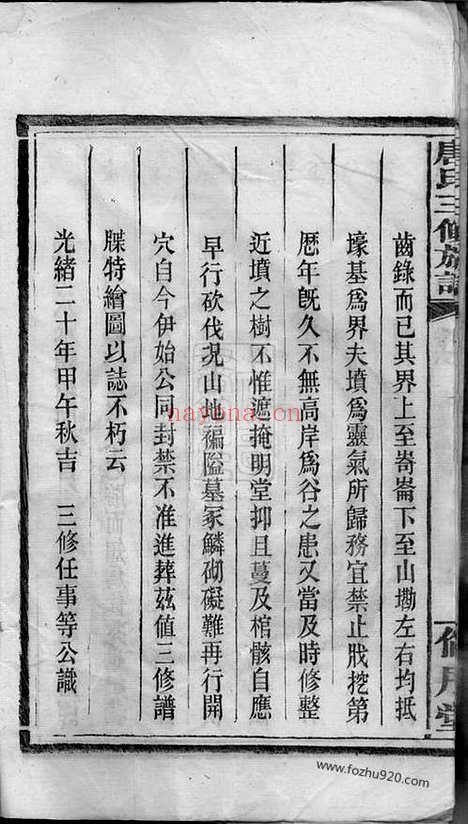 唐氏三修族譜
齒錄而已其界上至嵜崙下至山塝左右均抵
壕基爲界夫墳爲靈氣所歸務宜禁止戕挖第
歷年旣久不無高岸爲谷之患又當及時修整
近墳之樹不惟遮掩明堂抑且蔓及棺骸自應
早行砍伐況山地褊隘墓冢鱗砌礙難再行開
穴自今伊始公同封禁不准進葬茲值三修譜
牒特繪圖以誌不朽云
光緒二十年甲午秋吉　三修任事等公識
nayona.cn
www.fozhu920.com